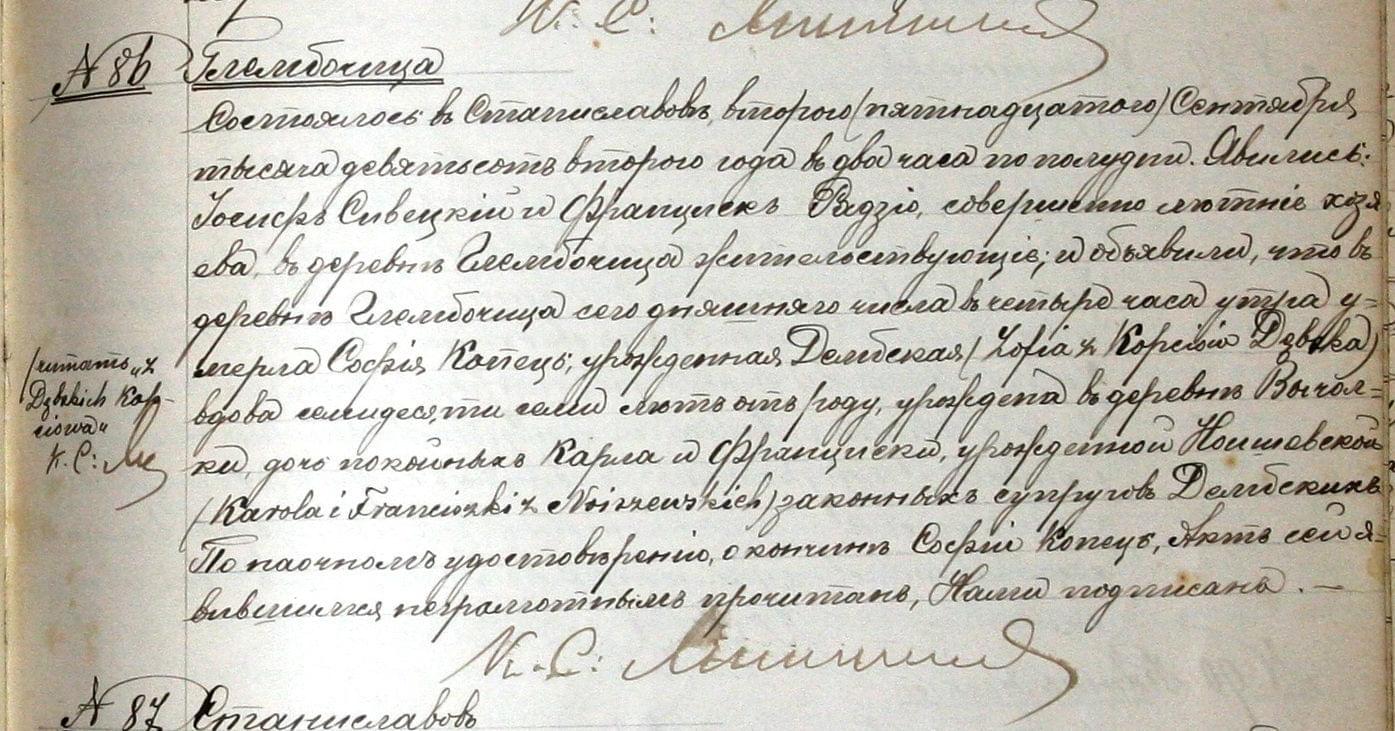 К. С.
N 86 Глембочица
Состоялось въ Станиславовѣ, второго (пятнадцатого) Сентября
тысяча девятьсотъ второго года въ два часа по полудни. Явились:
Іосифъ Сивецкій и Францискъ Радзіо, совершеннолѣтніе хозя
ева, въ деревнѣ Глембочица жительствующіе; и объявили, что въ
деревнѣ Глембочица сего дняшняго числа въ четыре часа утра у=
мерла Софія Копець; урожденная Дембская (Zofia z
вдова семидесяти семи лѣтъ отъ роду, урождена въ деревнѣ Вычол=
ки, дочь покойныхъ Карла и Франциски, урожденной Ноишевской
(Karola i Franciszki z Noiszewskich) законныхъ супруговъ Дембскихъ
По наочномъ удостовѣреніи, о кончинѣ Софіи Копець, Актъ сей я=
вившимся неграмотнымъ прочитанъ, Нами подписанъ. —
(читать „z
Dąbskich
К. С:
К. С:
N 87 Станиславовъ